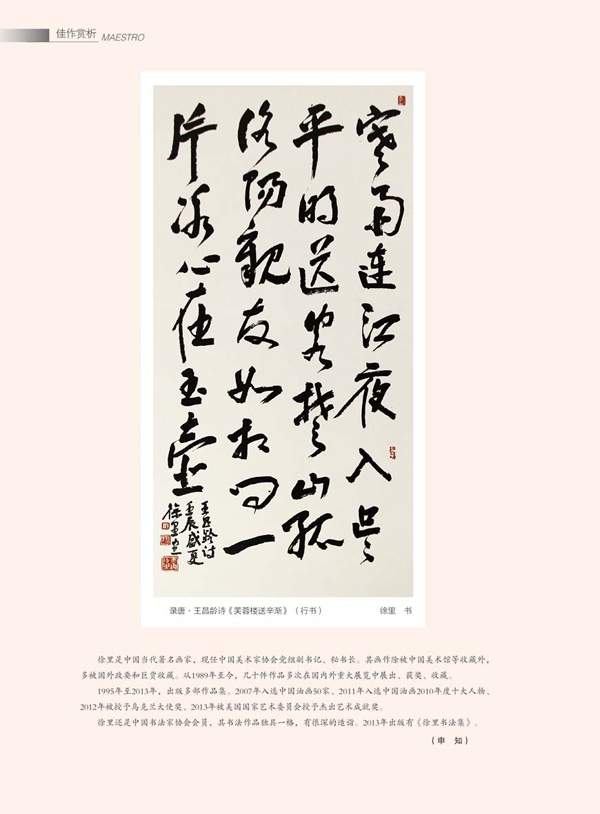 佳作赏析 MAESTRO
寒雨連江夜入吴
平明送客楚山孤
洛陽親友如相问一
片冰心在玉壺
王昌龄诗
壬辰盛夏
徐里
录唐·王昌龄诗《芙蓉楼送辛渐》（行书） 徐里 书
徐里是中国当代著名画家，现任中国美术家协会党组副书记、秘书长。其画作除被中国美术馆等收藏外，
多被国外政要和巨贾收藏。从1989年至今，几十件作品多次在国内外重大展览中展出、获奖、收藏。
1995年至2013年，出版多部作品集。2007年入选中国油画50家、2011年入选中国油画2010年度十大人物、
2012年被授予乌克兰大使奖、2013年被美国国家艺术委员会授予杰出艺术成就奖。
徐里还是中国书法家协会会员，其书法作品独具一格，有很深的造诣。2013年出版有《徐里书法集》。
（申 知）